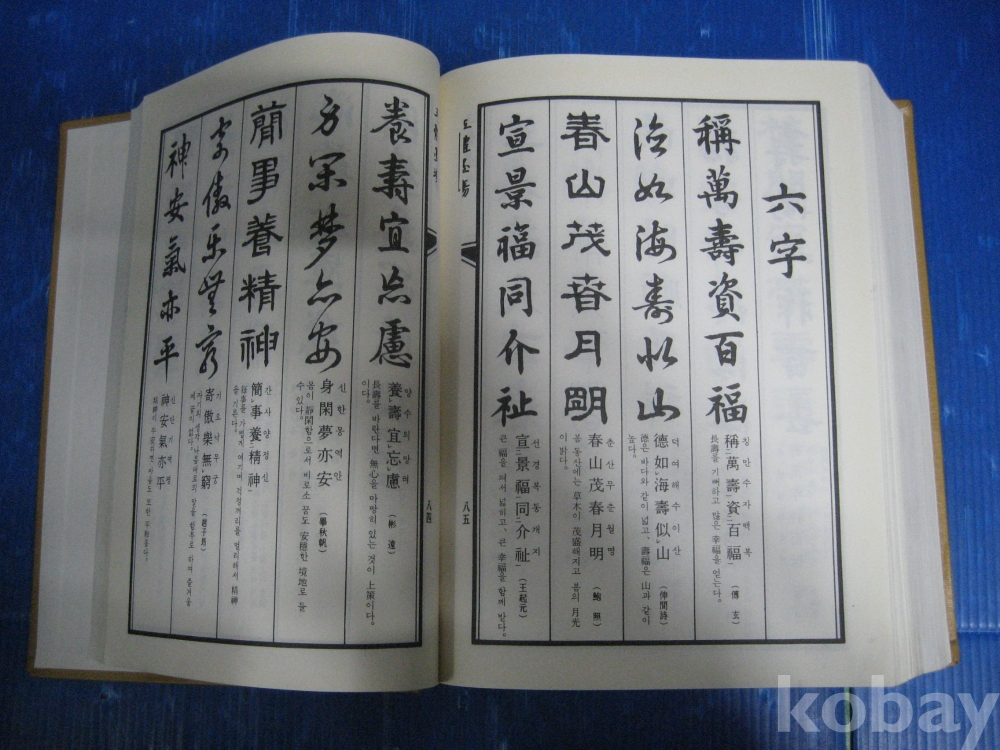 六字
稱萬壽資百福
칭만수자백복
稱萬壽資百福 (傅玄)
長壽를 기뻐하고 많은 幸福을 얻는다.
德如海壽似山
덕여해수이산
德如海壽似山 (仲閒詩)
德은 바다와 같이 넓고, 壽福은 山과 같이
높다.
春山茂春月明
춘산무춘월명
春山茂春月明 (鮑照)
봄 동산에는 草木이 茂盛해지고 봄의 月光
이 밝다.
宣景福同介祉
선경복동개지
宣景福同介祉 (王起元)
큰 福을 펴서 넓히고, 큰 幸福을 함께 받다.
八五
養壽宜忘慮
양수의망려
養壽宜忘慮
長壽를 바란다면 無心을 마땅히 있는 것이 上策이다.
身閑夢亦安
신한몽역안
身閑夢亦安 (畢秋帆)
몸이 靜閑함으로서 비로소 꿈도 安穩한 境地로 들
수 있다.
簡事養精神
간사양정신
簡事養精神
每事를 가볍게 여기며 걱정꺼리를 멀리해서 精神
을 기른다.
寄傲樂無窮
기오낙무궁
寄傲樂無窮 (趙子昂)
神安氣亦平
신안기역평
神安氣亦平
八四
kobay